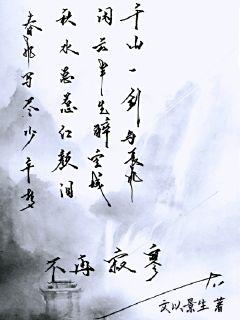 千山一剑与长风
闲云半生醉空城
秋水红颜泪
春风写尽少年梦
不再寂寥
文以景生 著